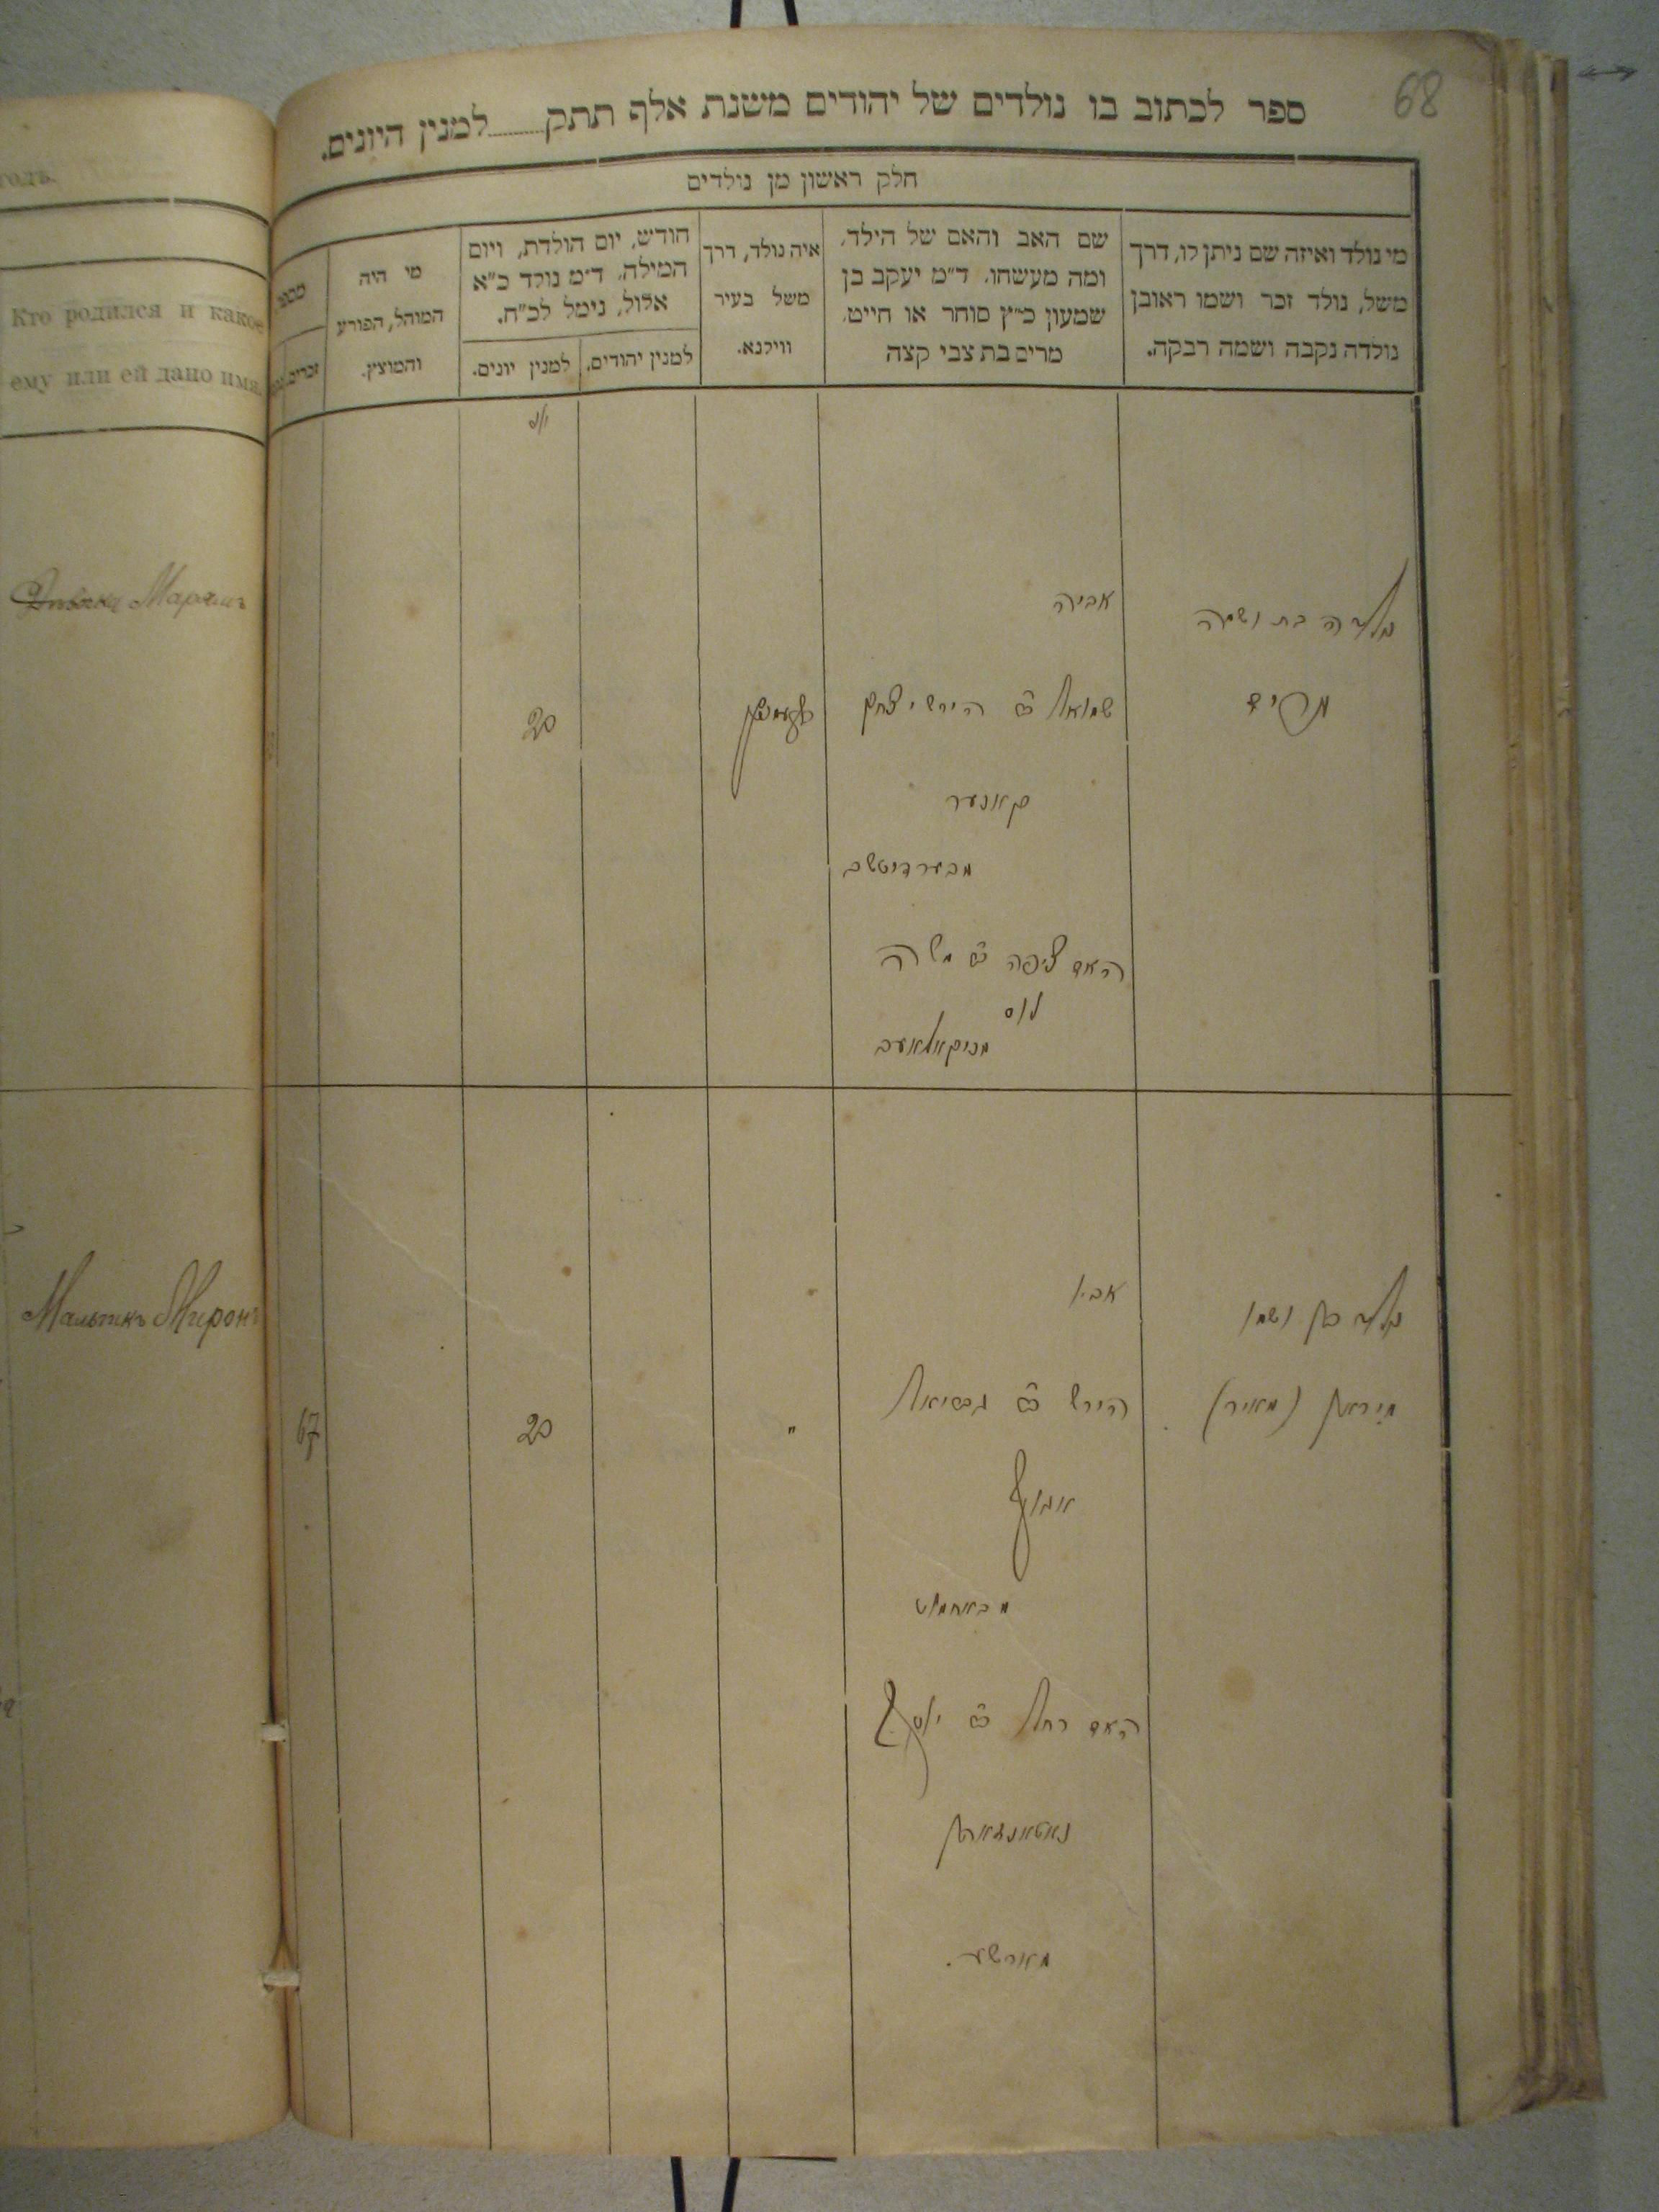 68
ספר לכתוב בו נולדים של יהודים משנת אלף תתק למנין היונים.
חלק ראשון מן נולדים
מי נולד ואיזה שם ניתן לו, דרך
משל, נולד זכר ושמו ראובן
נולדה נקבה ושמה רבקה.
שם האב והאם של הילד,
ומה מעשהו. ד״מ יעקב בן
שמעון כ״ץ סוחר או חייט,
מרים בת צבי קצה
איה נולד, דרך
משל בעיר
ווילנא.
חודש, יום הולדת, ויום
המילה, ד״מ נולד כ״א
אלול, נימל לכ״ח.
למנין יהודים.
למנין יונים.
מי היה
המוהל, הפורע
והמוצץ.
זכרים
נולדה בת ושמה
מרים
אביה
שמואל ב״ר הירש יצחק
קאנער
מבערדיטשב
האם ציפה ב״ר משה
מניקאלאעב
20
נולד בן ושמו
מיראן (מאיר)
אביו
הירש ב״ר גבריאל
מבאחמוט
האם רחל ב״ר יוסף
נאטאנזארן
מארשע.
"
20
67
годъ.
Кто родился и какое
ему или ей дано имя.
Маріямъ
Мальчикъ Миронъ